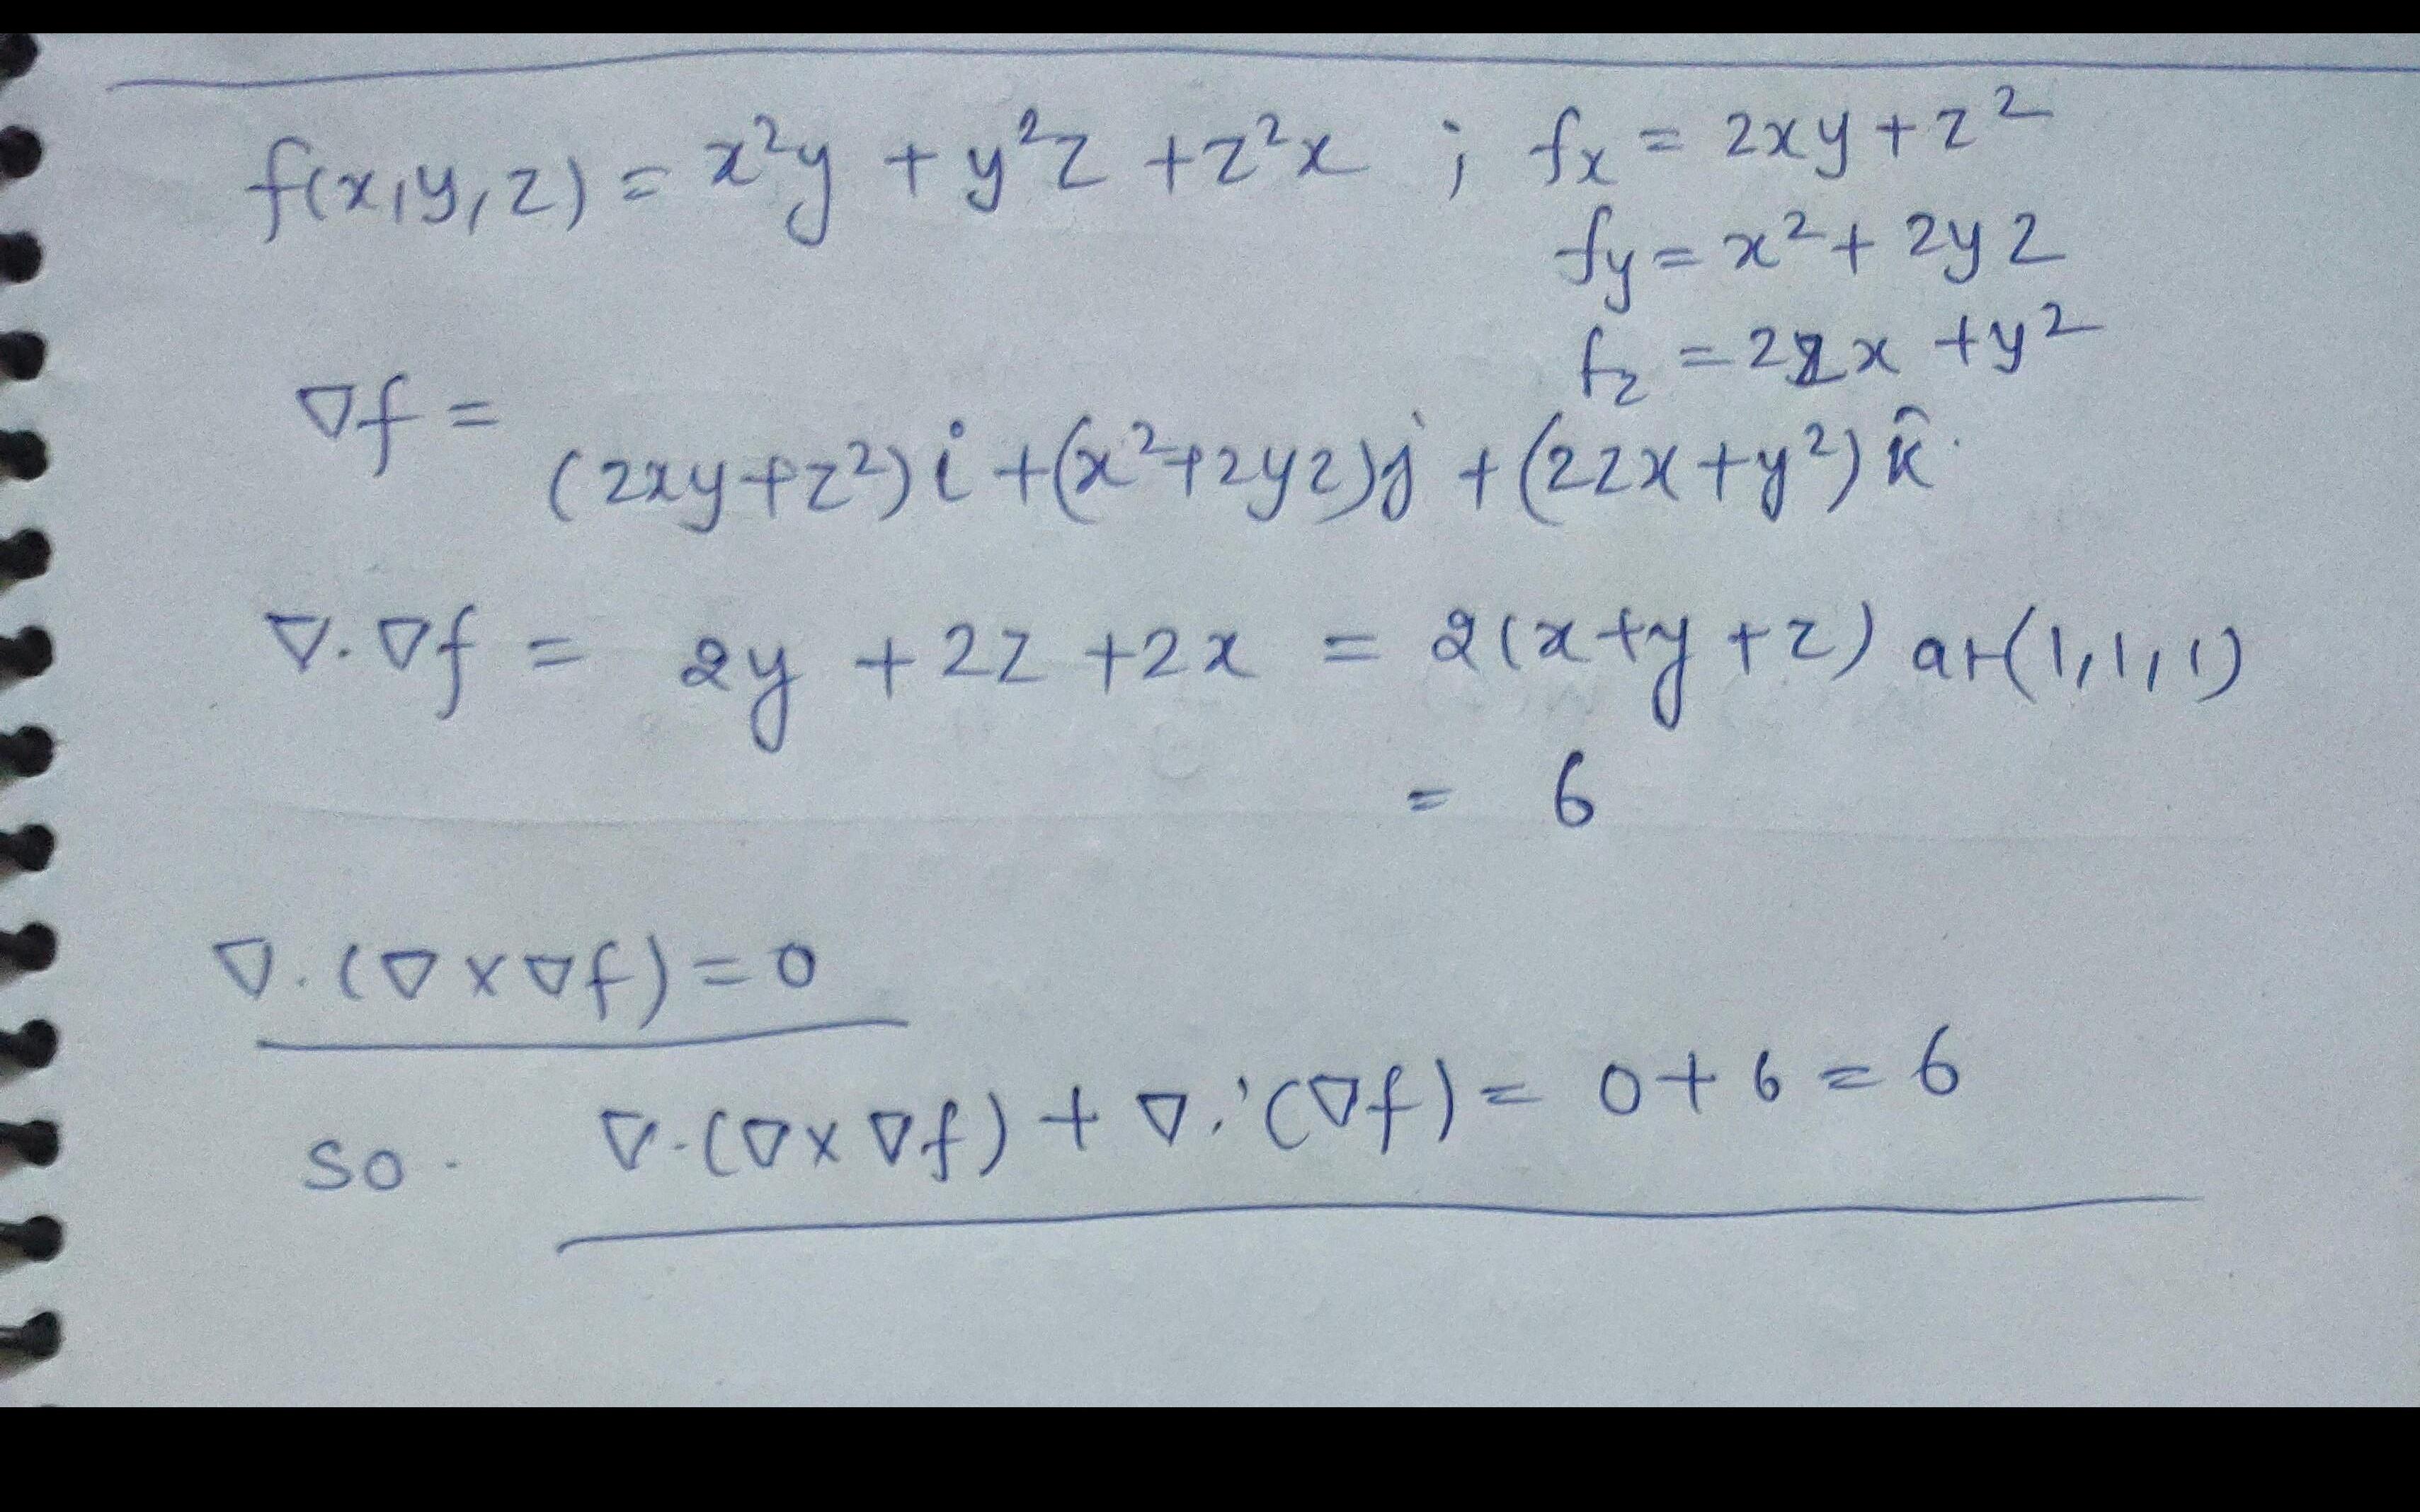 f(x,y,z) = x²y + y²z + z²x ; fx = 2xy + z²
fy = x² + 2yz
fz = 2zx + y²
∇f =
(2xy+z²)i + (x²+2yz)j + (2zx+y²)k̂.
∇.∇f = 2y + 2z + 2x = 2(x+y+z) at (1,1,1)
= 6
∇.(∇×∇f) = 0
so. ∇.(∇×∇f) + ∇.(∇f) = 0+6 = 6